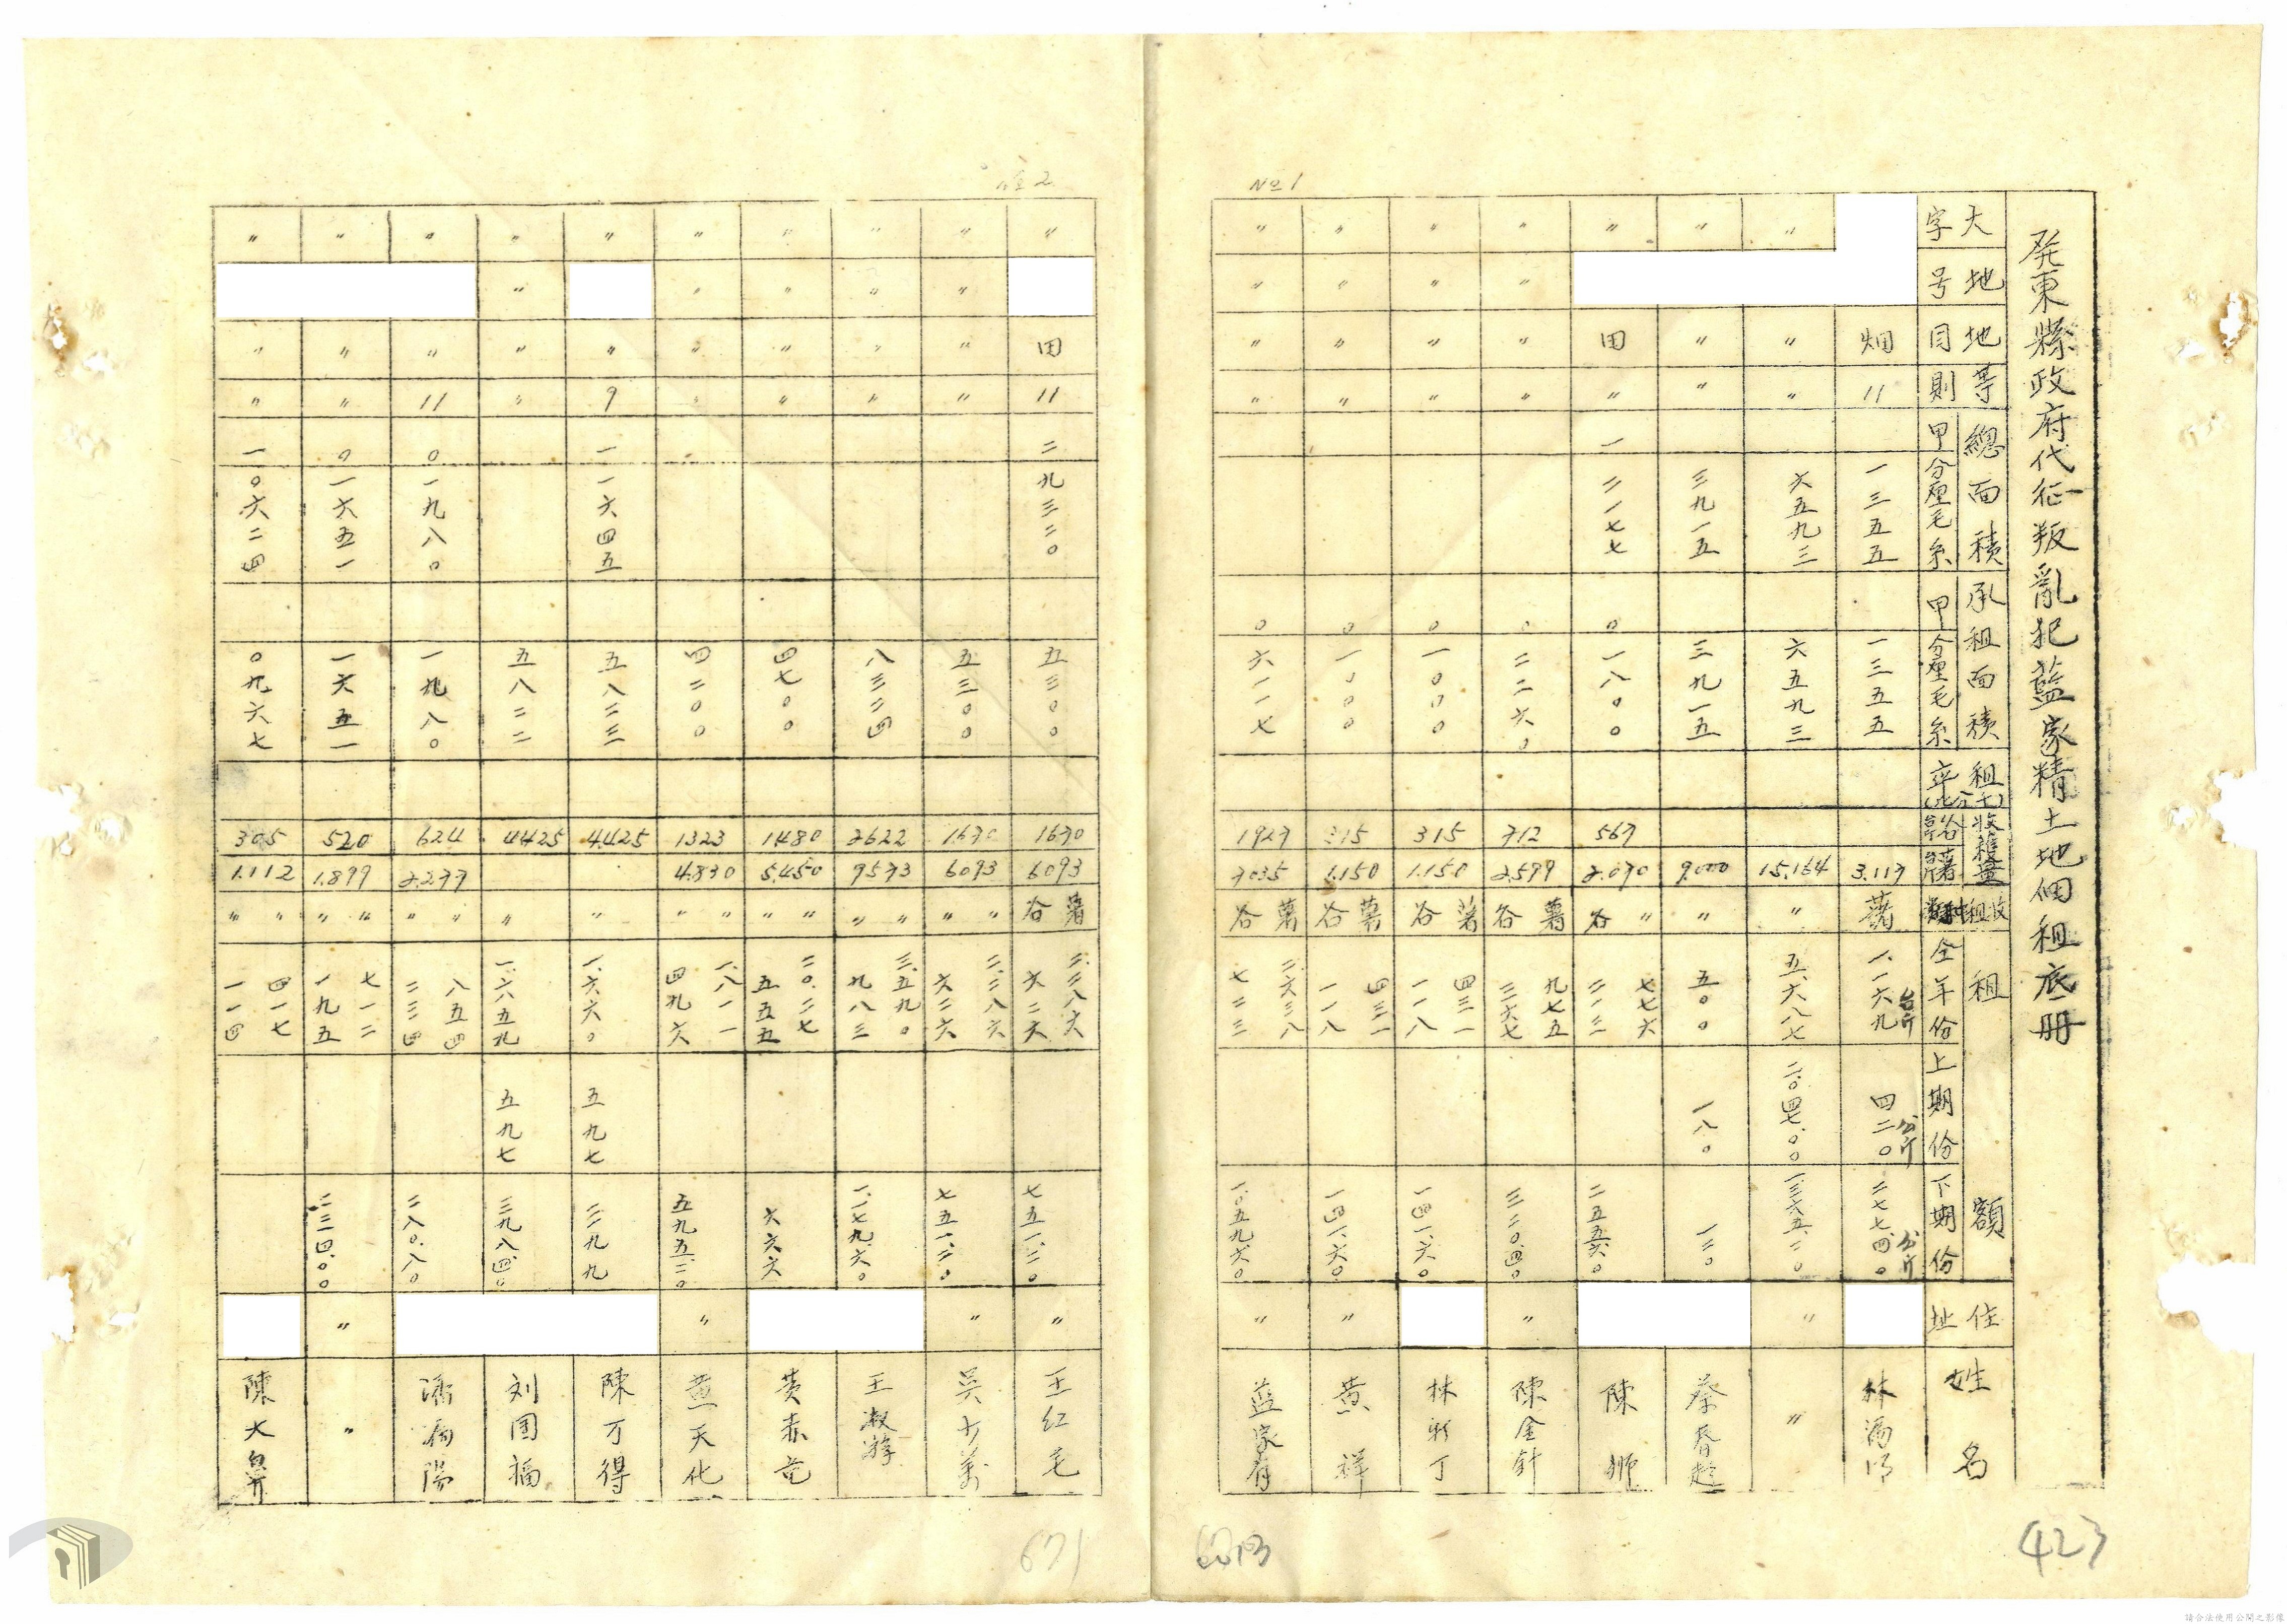 屏東縣政府代征叛亂犯藍家精土地佃租底冊
大字
地号
地目
等則
總面積
甲
分厘毛糸
承租面積
甲
分厘毛糸
收租
租額
全年份
上期份
下期份
住址
姓名
畑
11
一三五五
一三五五
3.117
薯
一.一六九
台斤
四二〇
公斤
二七七.四〇
公斤
〃
〃
〃
六五九三
六五九三
15.164
〃
五.六八七
二.〇四七.〇〇
一.三六五.二〇
〃
〃
〃
〃
〃
三九一五
三九一五
9.000
〃
五〇〇
一八〇
一二〇
蔡春趁
〃
田
〃
一
二一七七
〇
一八〇〇
567
2.070
〃
谷
七七六
二一二
二五五.六〇
陳獅
〃
〃
〃
〃
〇
二二六〇
712
2.599
薯
谷
九七五
二六七
三二〇.四〇
〃
陳金針
〃
〃
〃
〃
〇
一〇〇〇
315
1.150
薯
谷
四三一
一一八
一四一.六〇
林新丁
〃
〃
〃
〃
〇
一〇〇〇
315
1.150
薯
谷
四三一
一一八
一四一.六〇
〃
黄祥
〃
〃
〃
〃
〇
六一一七
1927
7035
薯
谷
二.六三八
七二三
一.〇五九.六〇
〃
藍家有
№1
423
〃
田
11
二
九三二〇
五三〇〇
1670
6093
薯
谷
二.二八六
六二六
七五一.二〇
〃
王红毛
〃
〃
〃
〃
五三〇〇
1670
6093
〃
〃
二.二八六
六二六
七五一.二〇
〃
〃
〃
〃
〃
八三二四
2622
9573
〃
〃
三.五九〇
九八三
一.一七九.六〇
王淑游
〃
〃
〃
〃
四七〇〇
1480
5.450
〃
〃
二〇.二七
五五五
六六六
黄赤屯
〃
〃
〃
〃
四二〇〇
1323
4.830
〃
〃
一.八一一
四九六
五九五.二〇
〃
黄天化
〃
〃
9
一
一六四五
五八二三
4425
〃
一.六六〇
五九七
三二九九
陳万得
〃
〃
〃
〃
五八二二
4425
〃
一.六五九
五九七
三九八.四〇
刘国福
〃
〃
11
〇
一九八〇
一九八〇
624
2.277
〃
〃
八五四
二三四
二八〇.八〇
〃
〃
〃
〇
一六五一
一六五一
520
1.899
〃
〃
七一二
一九五
二三四.〇〇
〃
〃
〃
〃
〃
一
〇六二四
〇九六七
305
1.112
〃
〃
四一七
一一四
陳大鼻
671
請合法使用公開之影像